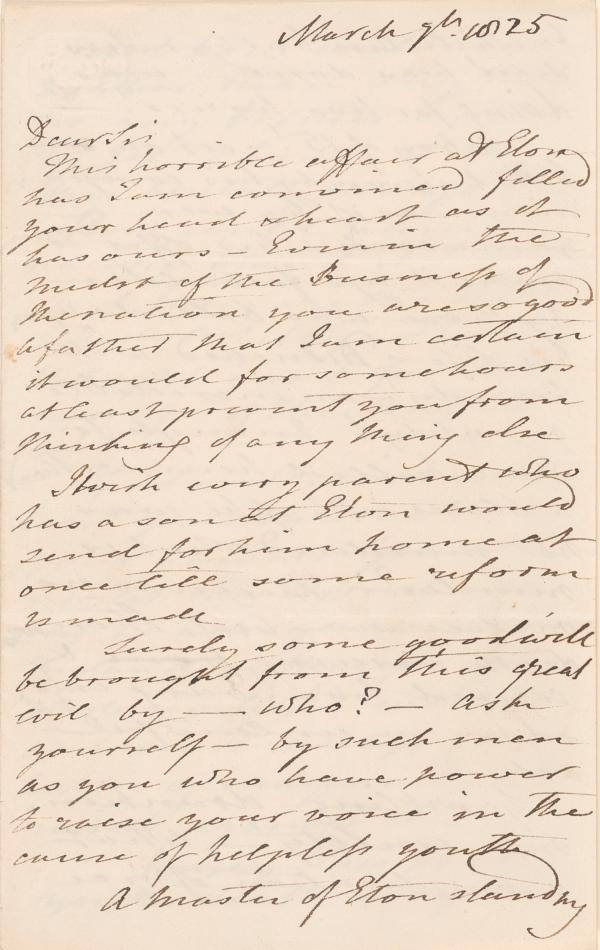 March 9th. 1825
Dear Sir
This horrible affair at Eton
has I am convinced filled
your head & heart as it
has ours – Even in the
midst of the Business of
the nation you are so good
a father that I am certain
it would for some hours
at least prevent you from
thinking of any thing else
I wish every parent who
has a son at Eton would
send for him home at
once till some reform
is made
Surely some good will
be brought from this great
evil by — who? – ask
yourself – by such men
as you who have power
to raise your voice in the
cause of helpless youth
A master of Eton standing